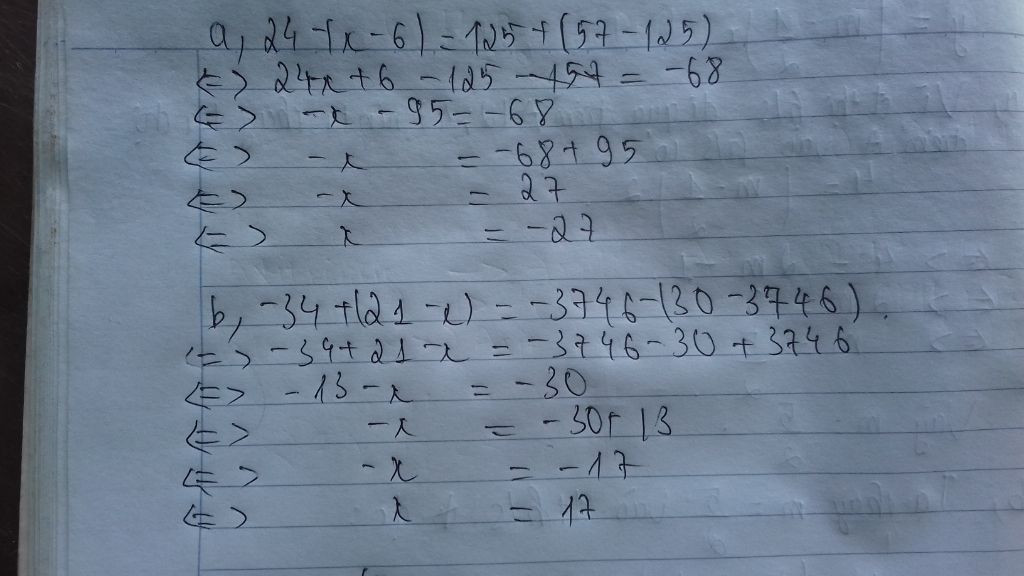 a, 24-(x-6)=125+(57-125)
<=> 24-x+6-125 = -68
<=> -x-95=-68
<=> -x = -68+95
<=> -x = 27
<=> x = -27
b, -34+(21-x) = -3746-(30-3746).
<=> -34+21-x = -3746-30+3746
<=> -13-x = -30
<=> -x = -30+13
<=> -x = -17
<=> x = 17